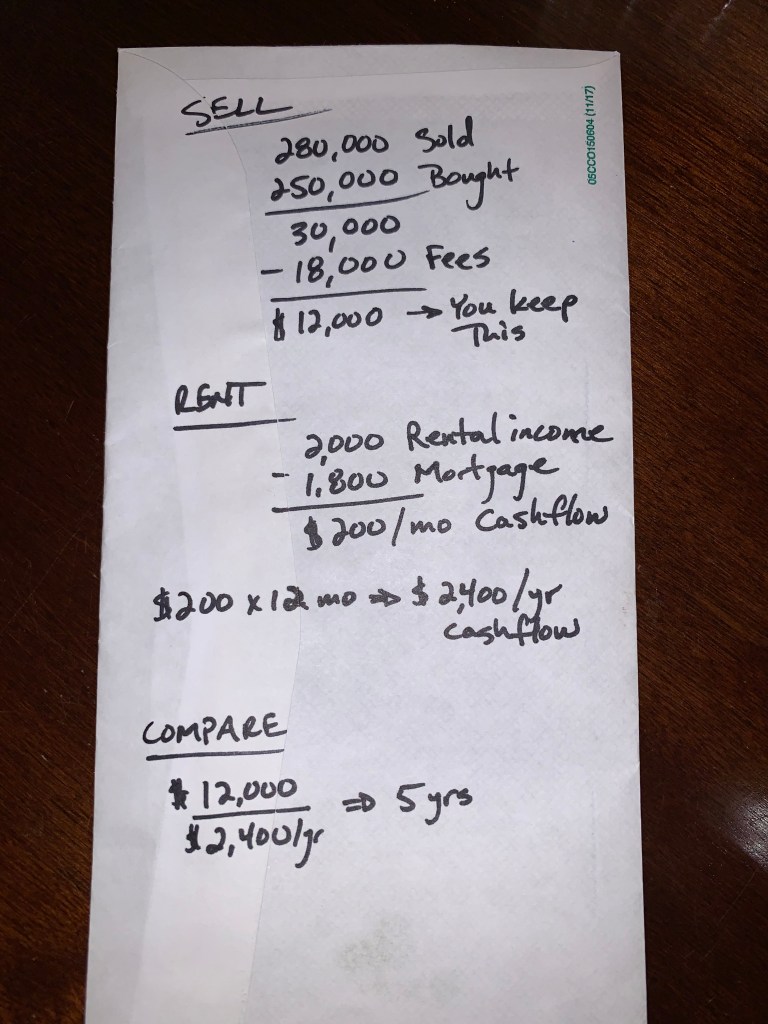 SELL
280,000 Sold
250,000 Bought
30,000
- 18,000 Fees
$ 12,000 → You keep
This
RENT
2,000 Rental income
- 1,800 Mortgage
$ 200/mo Cashflow
$200 x 12 mo ⇒ $ 2,400/yr
Cashflow
COMPARE
$ 12,000
$2,400/yr ⇒ 5 yrs
05CCO150604 (11/17)